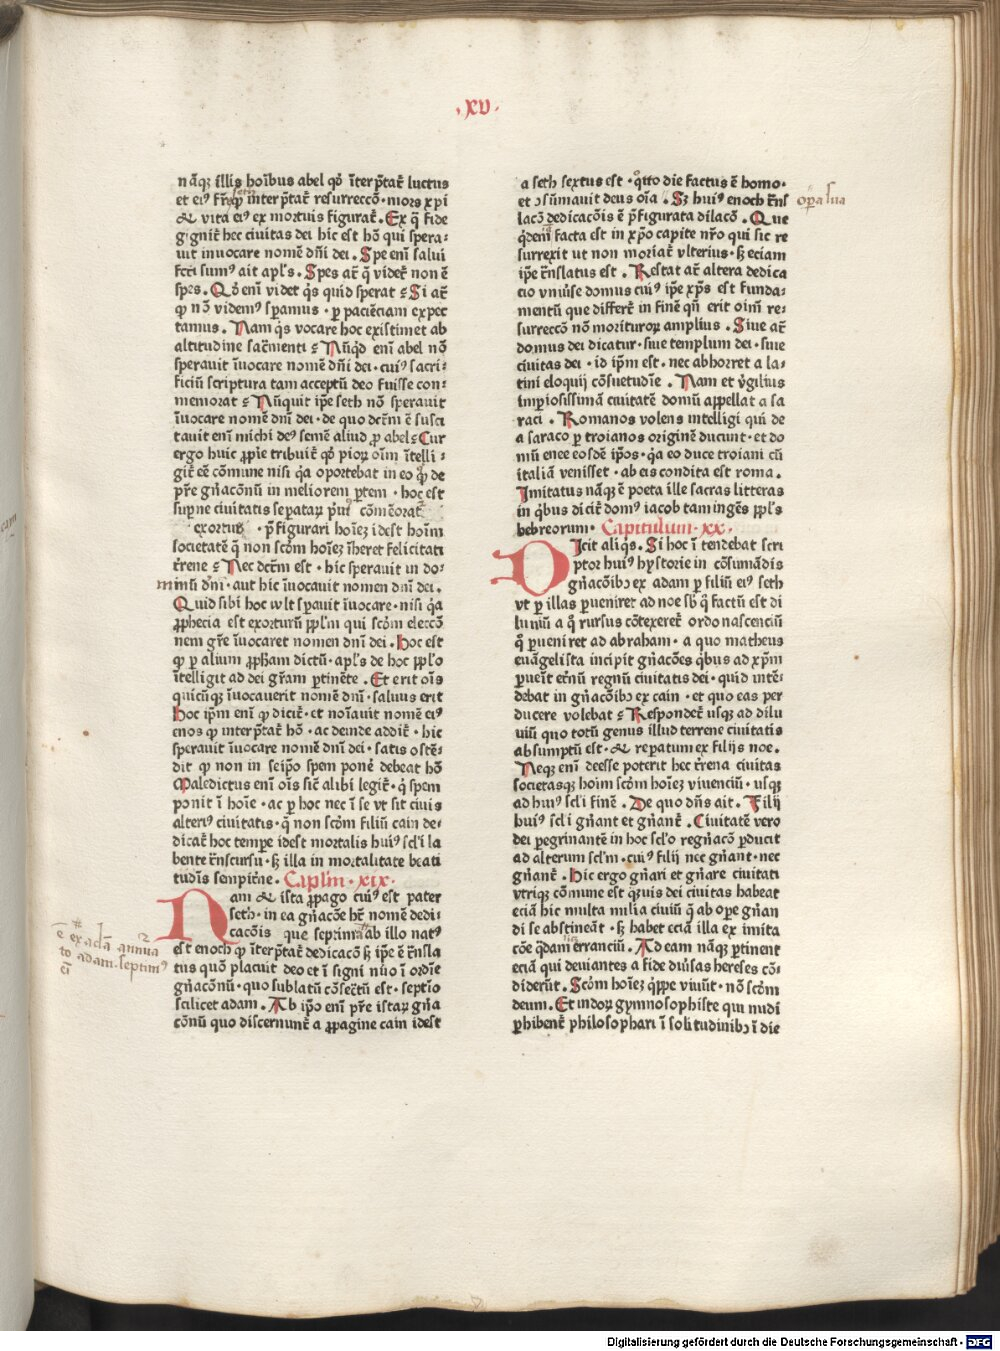 .xv.
nāq; illis hoībus abel qđ īterp̄tat̄ luctus
et eiꝰ fr̄ seth qꝫ interp̄tat̄ resurreccō·mors xpi
& vita eiꝰ ex mortuis figurat̄. Ex q̄ fide
gignit̄ hec ciuitas dei hic est hō qui spera-
uit inuocare nomē dn̄i dei. Spe enī salui
fcti sumꝰ ait apl's. Spes at̄ q̄ videt̄ non ē
spes. Qđ enī videt q̄s quid sperat ⸮ Si at̄
qꝫ nō videmꝰ speramus · ꝑ paciēciam expec
tamus. Nam q̄s vocare hoc existimet ab
altitudine sac̄menti ⸮ Nūq̄d enī abel nō
sperauit īuocare nomē dn̄i dei · cuiꝰ sacri-
ficiū scriptura tam acceptū deo fuisse con-
memorat ⸮ Nūquit ip̄e seth nō sperauit
īuocare nomē dn̄i dei · de quo dc̄m ē susci
tauit enī michi deꝰ semē aliud ꝓ abel⸮ Cur
ergo huic ꝓprie tribuit̄ qđ pioꝝ oīm ītelli-
git̄ eē cōmune nisi qa oportebat in eo q̄ de
pr̄e gn̄acōnū in meliorem ꝑtem · hoc est
suꝑne ciuitatis seꝑataꝝ pꝰmꝰ cōmēorat̄
exortus · p̄figurari hoīez idest hoīm
societatē q̄ non scđm hoīez īheret felicitati
tr̄ene ⸮ Nec dc̄m est · hic sperauit in do-
minū dn̄i · aut hic īuocauit nomen dn̄i dei.
Quid sibi hoc wlt sperauit īuocare · nisi qa
ꝓphecia est exorturū ppl'm qui scđm eleccō
nem gr̄e īuocaret nomen dn̄i dei. Hoc est
qꝫ ꝑ alium ꝓph̄am dictū · apl's de hoc ppl'o
ītelligit ad dei gr̄am ꝑtinēte. Et erit oīs
quicūq; īuocauerit nomē dn̄i · saluus erit
Hoc ip̄m enī qꝫ dicit̄ · et noīauit nomē eiꝰ
enos qꝫ interp̄tat̄ hō · ac deinde addit̄ · hic
sperauit īuocare nomē dn̄i dei · satis ostē-
dit qꝫ non in seip̄o spem pone debeat hō
Maledictus enī oīs sic̄ alibi legit̄ · q̄ spem
ponit ī hoīe · ac ꝑ hoc nec ī se vt sit ciuis
alteriꝰ ciuitatis · q̄ non scđm filiū cain de-
dicat̄ hoc temꝑe idest mortalis huiꝰ scl'i la
bente tr̄nscursu · sꝫ illa in mortalitate beati
tudīs sempit̄ne. Capl'm · xix.
Nam & ista ꝓpago cuiꝰ est pater
seth · in ea gn̄acōe ht̄ nomē dedi-
cacōis que septima ab illo natꝰ
est enoch qꝫ īterp̄tat̄ dedicacō sꝫ ip̄e ē tr̄nsla
tus quō placuit deo et ī signi nūo ī ordīe
gn̄acōnū · quo sublatū cōsec̄tū est · septīo
scilicet adam. Ab ip̄o enī pr̄e istaꝝ gn̄a
cōnū quo discernunt̄ a ꝓpagine cain idest
ē ex adā annūa
to adam·septimꝰ
a seth sextus est · q̄tto die factus ē homo·
et ꝯsūmauit deus oīa. Sꝫ huiꝰ enoch tr̄ns
opa sua
lacō dedicacōis ē p̄figurata dilacō. Que
q̄dem facta est in xp̄o capite nr̄o qui sic re
surrexit ut non moriat̄ vlterius · sꝫ eciam
ip̄e tr̄nslatus est. Restat at̄ altera dedica
cio vniūse domus cuiꝰ ip̄e xp̄s est funda-
mentū que differt̄ in finē qn̄ erit oīm re-
surreccō nō morituroꝝ amplius. Siue at̄
domus dei dicatur · siue templum dei · siue
ciuitas dei · id ip̄m est · nec abhorret a la-
tini eloquij cōsuetudīe. Nam et v̄gilius
imꝑiosissimā ciuitatē domū appellat a sa
raci. Romanos volens intelligi qui de
a saraco ꝑ troianos originē ducunt · et do
mū enee eosdē ip̄os · qa eo duce troiani cū
italiā venisset · ab eis condita est roma.
Imitatus nāq; ē poeta ille sacras litteras
in q̄bus dicit̄ domꝰ iacob tam ingēs ppl's
hebreorum. Capitulum · xx.
Dicit aliq̄s. Si hoc ī tendebat scri
ptor huiꝰ hystorie in cōsumādis
gn̄acōibꝫ ex adam ꝑ filiū eiꝰ seth
vt ꝑ illas ꝑueniret ad noe sb̄ q̄ factū est di
luuiū a q̄ rursus cōtexeret̄ ordo nascenciū
q̄ ꝑueniret ad abraham · a quo matheus
euāgelista incipit gn̄acōes q̄bus ad xp̄m
ꝑueīt et̄nū regnū ciuitatis dei · quid intē-
debat in gn̄acōibꝫ ex cain · et quo eas per
ducere volebat ⸮ Respondet̄ usq; ad dilu
uiū quo totū genus illud terrene ciuitatis
absumptū est · & reꝑatum ex filijs noe.
Neq; enī deesse poterit hec tr̄rena ciuitas
societasq; hoīm scđm hoīez viuenciū · usq;
ad huiꝰ scl'i finē. De quo dn̄s ait. Filij
huiꝰ scl'i gn̄ant et gn̄ant̄. Ciuitatē vero
dei ꝑegrinantē in hoc scl'o regn̄acō ꝑducit
ad alterum scl'm · cuiꝰ filij nec gn̄ant · nec
gn̄ant̄. Hic ergo gn̄ari et gn̄are ciuitati
vtriq; cōmune est q̄uis dei ciuitas habeat
eciā hic multa milia ciuiū q̄ ab oꝑe gn̄an
di se abstineāt · sꝫ habet eciā illa ex imita
cōe q̄dam erranciū. Ad eam nāq; ꝑtinent
eciā qui deuiantes a fide diūsas hereses cō-
diderūt. Scđm hoīez q̄ppe viuūt · nō scđm
deum. Et indoꝝ gymnosophiste qui nudi
ꝑhibent̄ philosophari ī solitudinibꝫ ī die
Digitalisierung gefördert durch die Deutsche Forschungsgemeinschaft - DFG